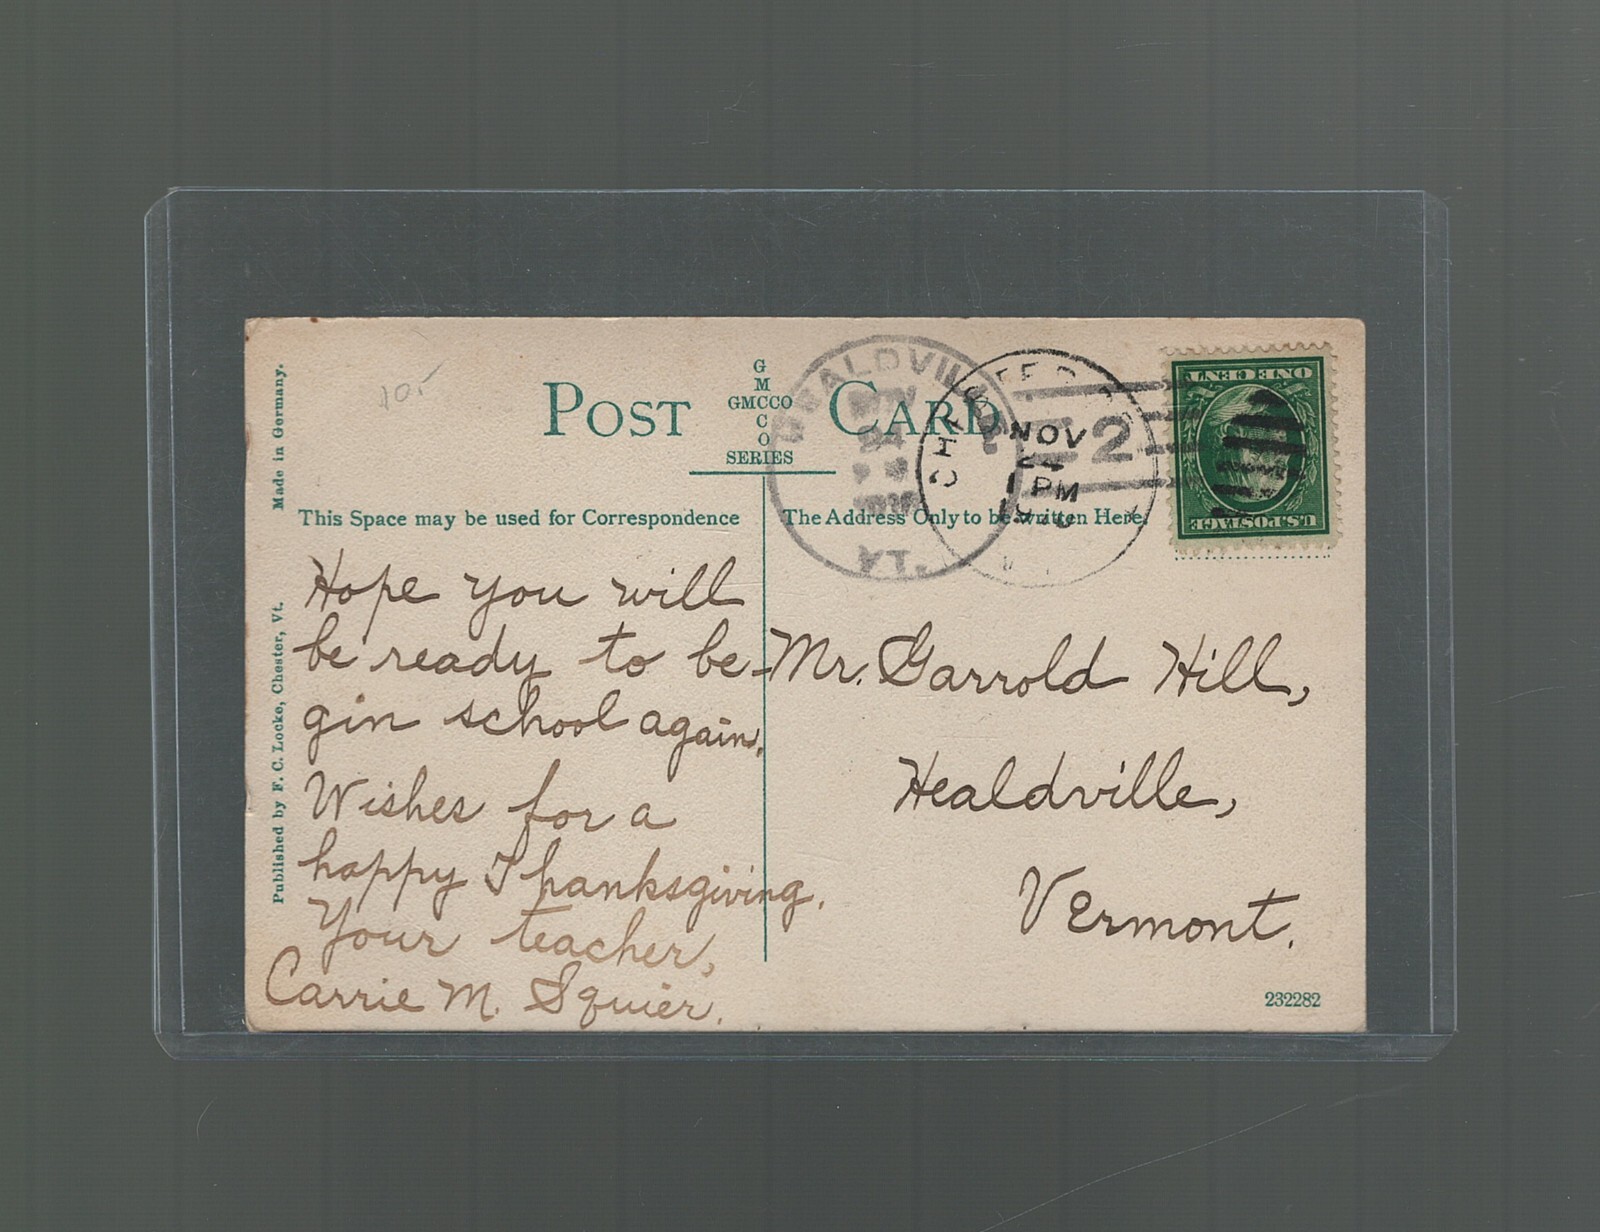 Made in Germany.
Published by F. C. Locke, Chester, Vt.
105
POST CARD
G
M
GMCCO
C
O
SERIES
HEALDVILLE
CHESTER
NOV
PM
2
ONE CENT
U.S. POSTAGE
This Space may be used for Correspondence
The Address Only to be written Here.
Hope you will
be ready to be-
gin school again.
Wishes for a
happy Thanksgiving.
Your teacher,
Carrie M. Squier.
Mr. Garrold Hill,
Healdville,
Vermont.
232282